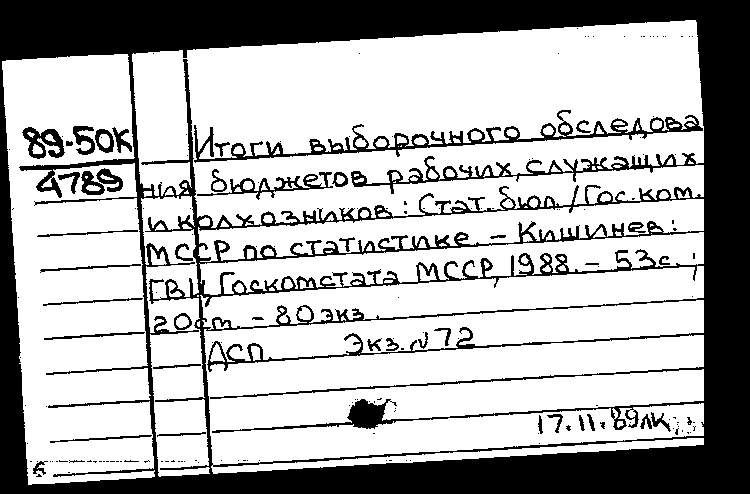 89-50К
4789
Итоги выборочного обследова
ния бюджетов рабочих, служащих
и колхозников: Стат. бюл. / Гос. ком.
МССР по статистике. - Кишинев:
ГВЦ Госкомстата МССР, 1988. - 53с.;
20см. - 80 экз.
ДСП. Экз. N 72
17.11.89лк
6